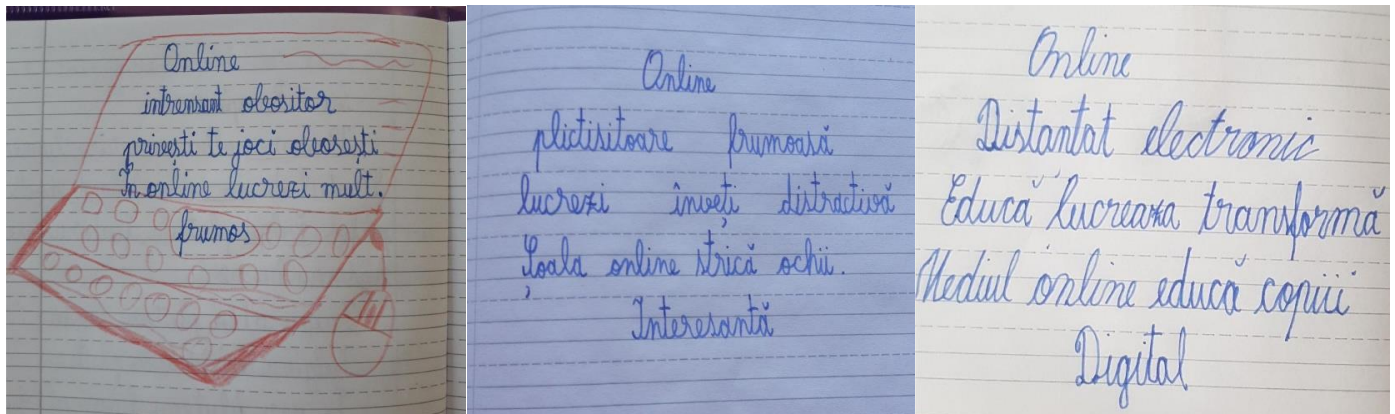 Online
intrensant obositor
privești te joci obosești
În online lucrezi mult.
frumos
Online
plictisitoare frumoasă
lucrezi înveți distractivă
Șoala online strică ochii.
Interesantă
Online
Distantat electronic
Educă lucreaza transformă
Mediul online educă copiii
Digital